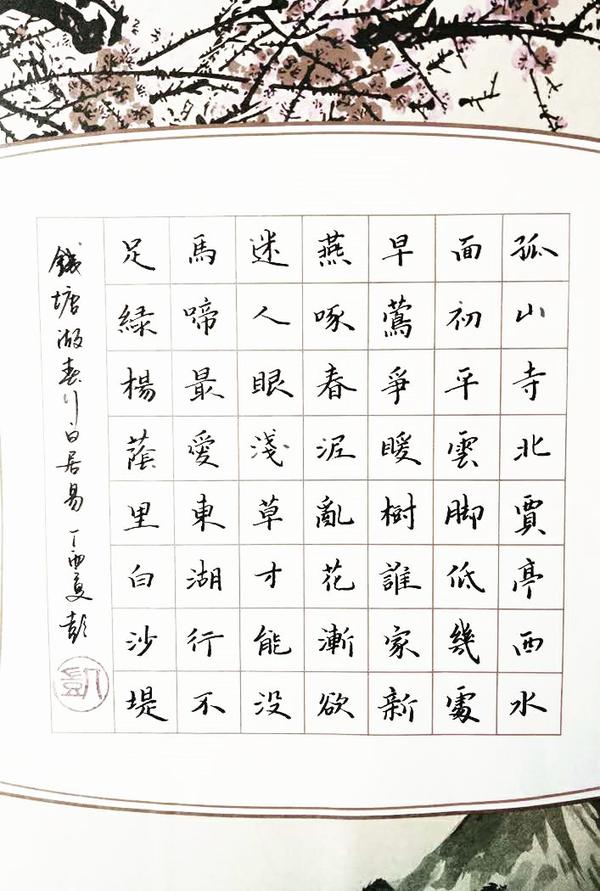 孤山寺北賈亭西水
面初平雲脚低幾處
早鶯爭暖樹誰家新
燕啄春泥亂花漸欲
迷人眼淺草才能没
馬啼最愛東湖行不
足綠楊蔭里白沙堤
錢塘湖春行白居易 丁酉夏 彭